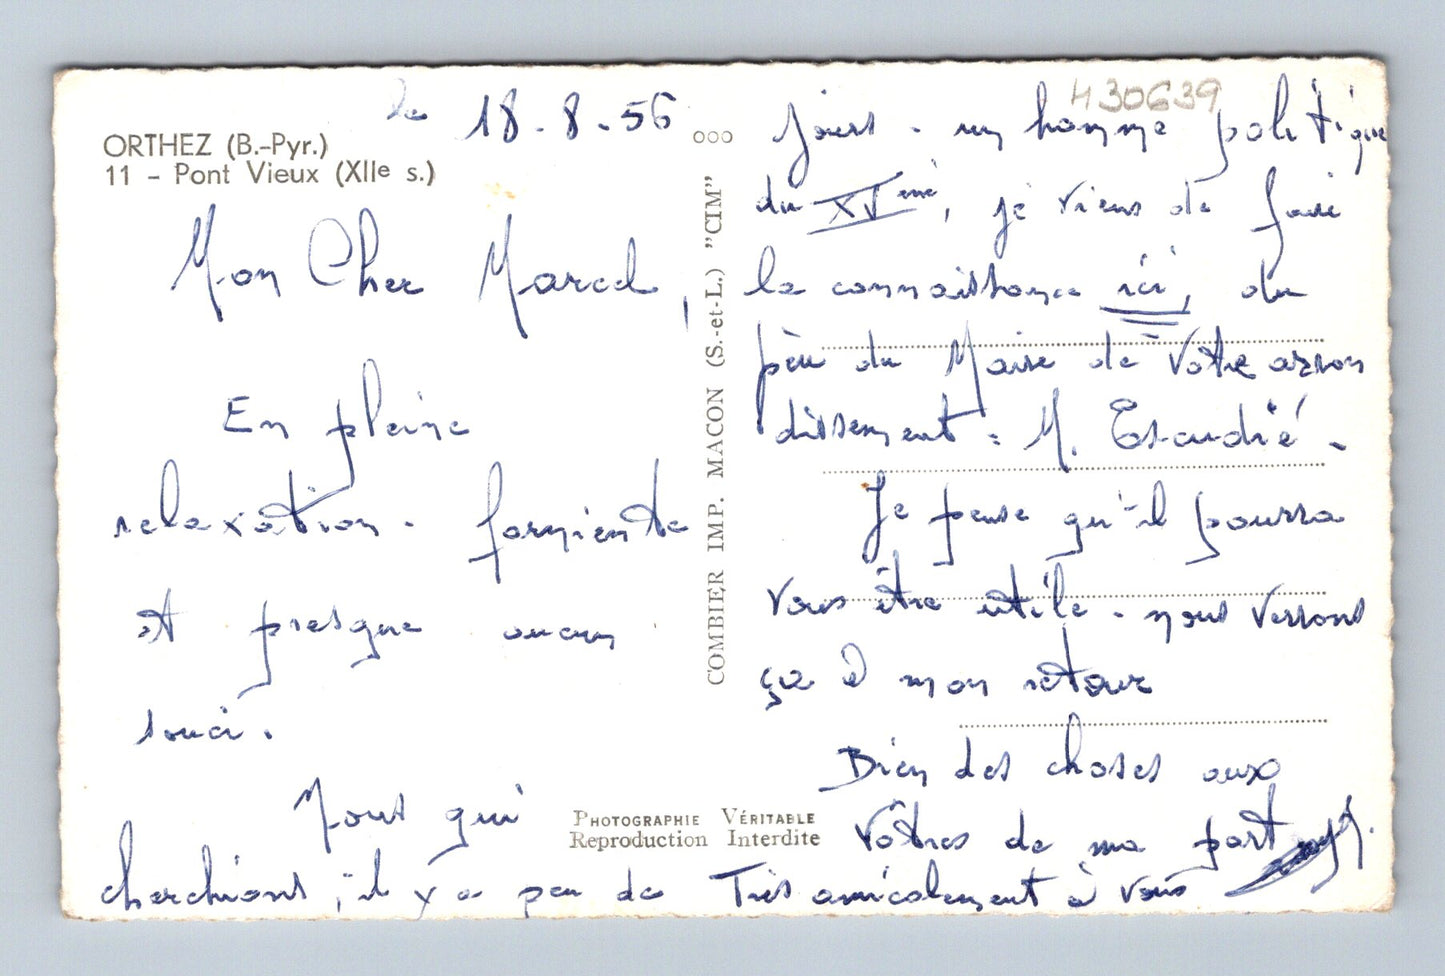 le 18-8-56
ORTHEZ (B.-Pyr.)
11 - Pont Vieux (XIIe s.)
Mon Cher Marcel,
En pleine
relaxation - farniente
et presque aucun
souci.
Nous qui
cherchions, il y a peu de
COMBIER IMP. MACON (S.-et-L.) "CIM"
PHOTOGRAPHIE VÉRITABLE
Reproduction Interdite
ooo
430639
jours - un homme politique
du XVeme, je viens de faire
la connaissance ici, du
père du Maire de votre arron
dissement : M.
Je pense qu'il pourra
vous être utile - nous verrons
ça à mon retour
Bien des choses aux
Vôtres de ma part
Très amicalement à vous